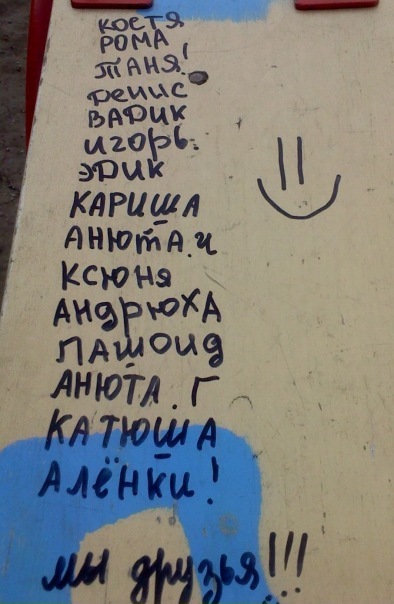 КОСТЯ
РОМА
ТАНЯ!
ДЕНИС
ВАДИК
ИГОРЬ.
ЭДИК
КАРИША
АНЮТА.Ч
КСЮНЯ
АНДРЮХА
ПАШОИД
АНЮТА.Г
КАТЮША
АЛЁНКИ!
МЫ ДРУЗЬЯ!!!